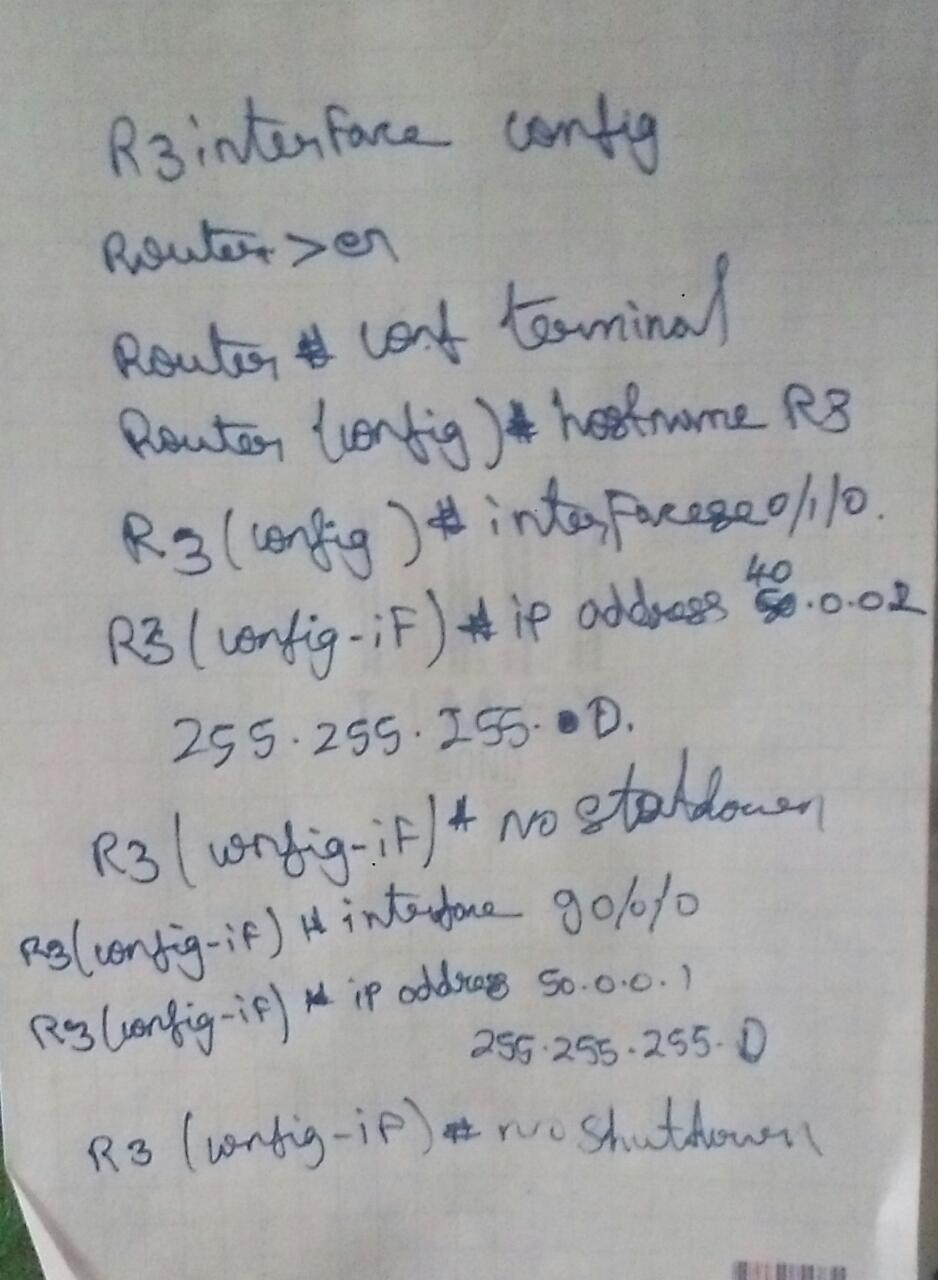 R3 interface config
Router >en
Router # conf terminal
Router (config)# hostname R3
R3 (config)# interface se0/1/0.
R3 (config-if)# ip address 40.0.02
255.255.255.0.
R3 (config-if)# no statdown
R3 (config-if) # interface g0/0/0
R3 (config-if) # ip address 50.0.0.1
255.255.255.0
R3 (config-if) # no shutdown